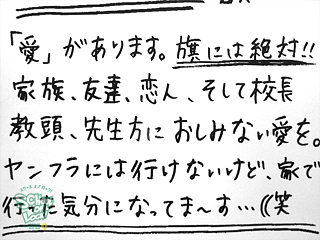 「愛」があります。旗には絶対!!
家族、友達、恋人、そして校長
教頭、先生方におしみない愛を。
ヤンフラには行けないけど、家で
行った気分になってま〜す…((笑